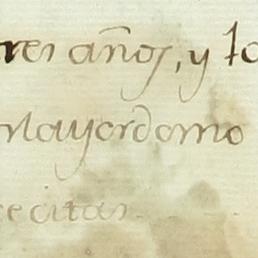 res años, y lo
Mayordomo
recitar